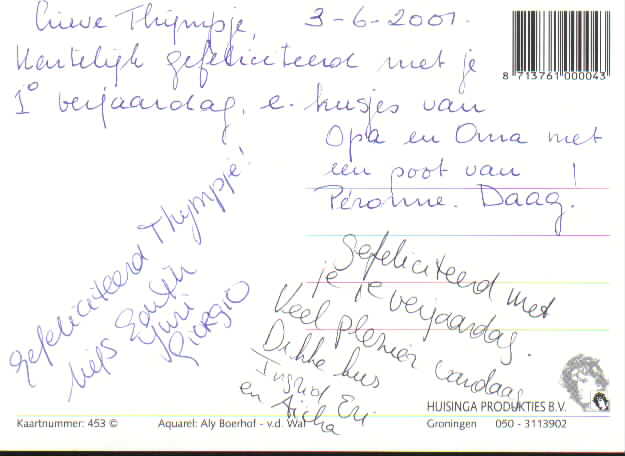 Lieve Thijmpje, 3-6-2001.
Hartelijk gefeliciteerd met je
1e verjaardag, e. kusjes van
Opa en Oma met
een poot van !
Péronne. Daag.
8 713761 000043
Gefeliciteerd Thijmpje!
liefs
Yuri
Giorgio
Gefeliciteerd met
je 1e verjaardag.
Veel plezier vandaag
Dikke kus
Ingrid Eri
en Aicha
HUISINGA PRODUKTIES B.V.
Kaartnummer: 453 © Aquarel: Aly Boerhof - v.d. Wal Groningen 050 - 3113902